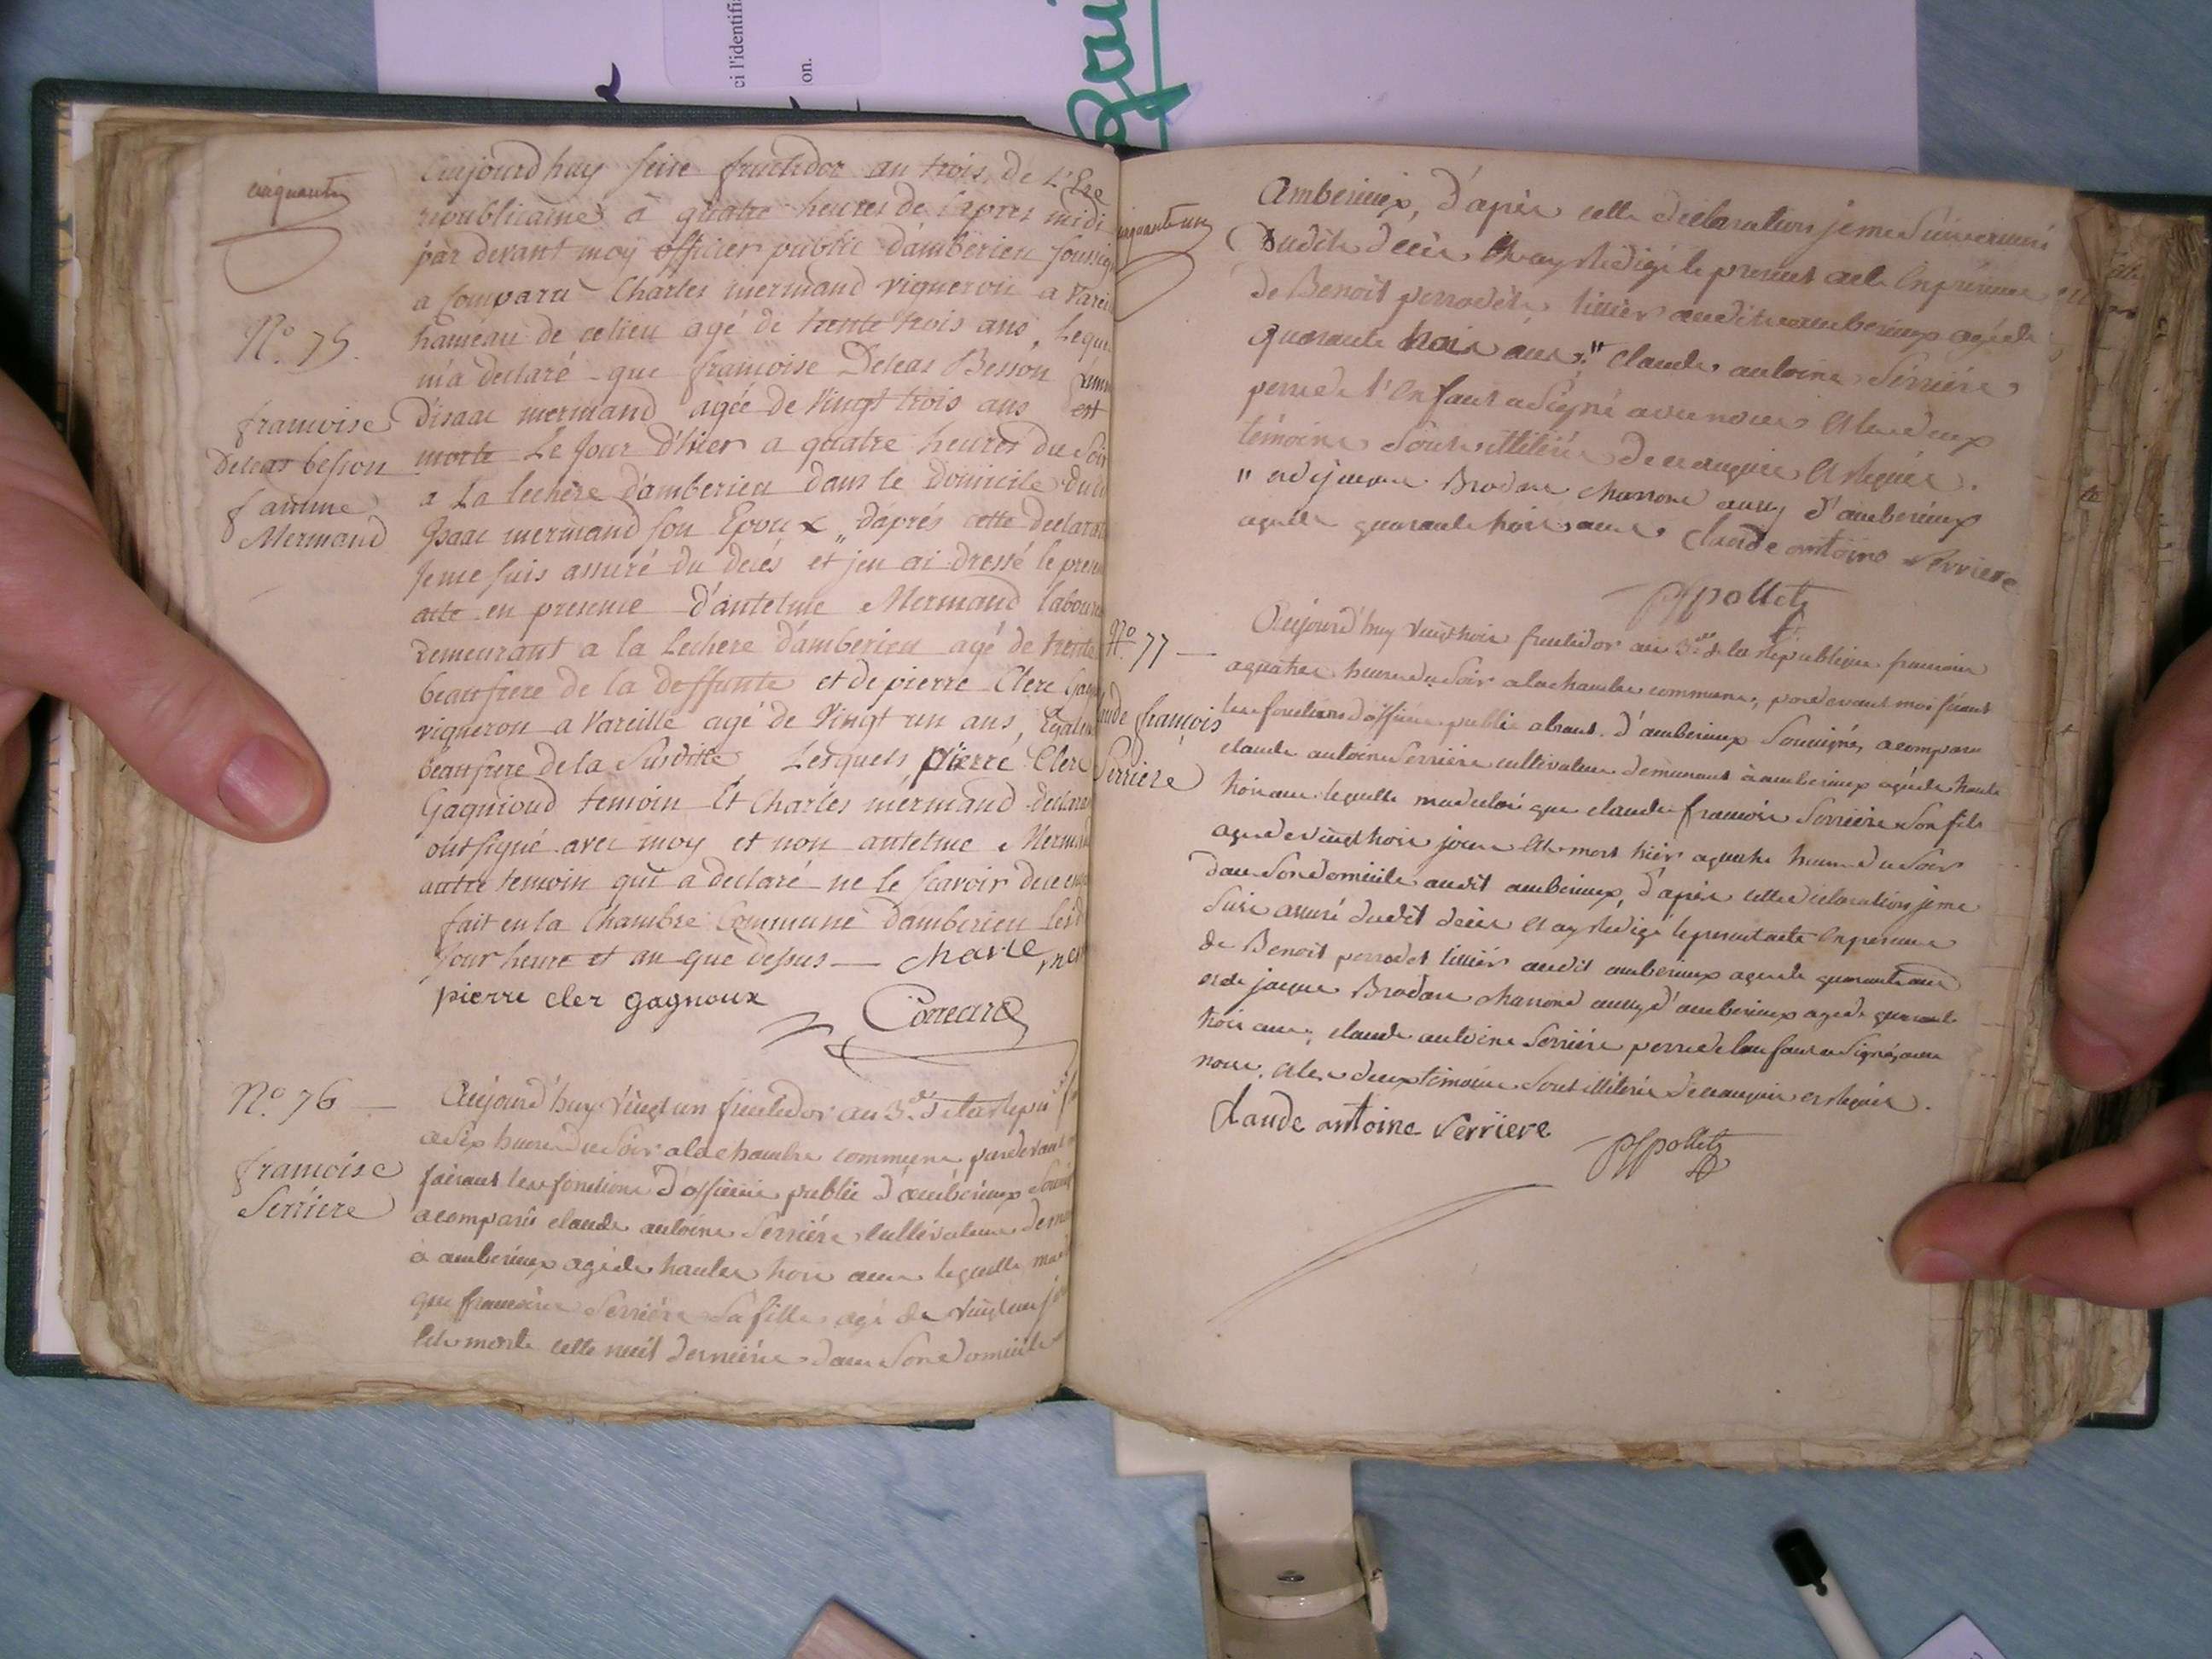 ci l'identifi
on.
cinquante
Aujourd huy seise fructidor an trois de L'Ere
republicaine à quatre heures de lapres midi
par devant moy officier public d'amberieu soussig
a Comparu Charles mermand vigneron a Vareil
hameau de ce lieu agé de trente trois ans, Lequ
m'a declaré que francoise Deleas Besson
d'isaac mermand agée de Vingt trois ans est
morte Le Jour d'hier a quatre heures du Soir
a La lechere d'amberieu dans le Domicile dud
Isaac mermand son Epoux „ d'aprés cette declarat
Je me suis assuré du decés et jen ai dressé le presen
acte en presence d'antelme Mermand laboure
Demeurant a la Lechere d'amberieu agé de trente
beaufrere de la deffunte et de pierre Clerc Gag
vigneron a Vareille agé de Vingt un ans, Egalem
beaufrere de la Susditte Lesquels pierre Clerc
Gagnioud temoin Et Charles mermand declaran
ont signé avec moy et non antelme Merma
autre temoin qui a declaré ne le scavoir de ce enq
fait en la Chambre Commune d'amberieu lesd
Jour heure et an que dessus — charle mer
pierre cler gagnoux
N.o 75.
francoise
Deleas besson
famme
Mermand
N.o 76 —
francoise
Serriere
Aujourd'huy vingt un fructidor an 3.me de la repu
a six heure du Soir a la chambre commune par devant
faisant les fonctions d'officier public d'amberieux Sousig
a comparu claude antoine Serriere cultivateur demeu
à amberieux agé de trante trois ans lequelle ma
que francoise Serriere Sa fille agé de vingt un jo
est morte cette nuit derniere dans Son domicile
cinquante un
Amberieux, d'après cette declaration je me Suis assuré
dudit décès Et ay Redigé le present acte en presence
de Benoit perrodet tillier audit amberieux agé de
quarante trois ans " Claude antoine Serriere
perre de l'enfant a Signé avec nous Et les deux
témoins Sont illitérés de ce enquis Et requis.
" et de jacque Brodare charron aussy d'amberieux
agé de quarante trois ans Claude antoine Serriere
N.o 77 —
aude françois
Serriere
Aujourd'huy vingt trois fructidor an 3.me de la République francaise
a quatre heure du Soir a la chambre commune, par devant moi fesant
les fonctions d'officier public absent d'amberieux Sousigné, a comparu
claude antoine Serriere cultivateur demeurant à amberieux agé de trante
trois ans lequelle ma declaré que claude francois Serriere Son fils
agé de vingt trois jour Et mort hier a quatre heure du Soir
dans Son domicile audit amberieux, d'après cette declaration je me
Suis assuré dudit décès Et ay Redigé le present acte En presence
de Benoit perrodet tillier audit amberieux agé de quarante ans
et de jacque Brodare charron aussy d'amberieux agé de quarante
trois ans, claude antoine Serriere perre de lanfant a Signé, avec
nous, Et les deux témoins Sont illitérés de ce enquis et Requis.
Claude antoine Serriere